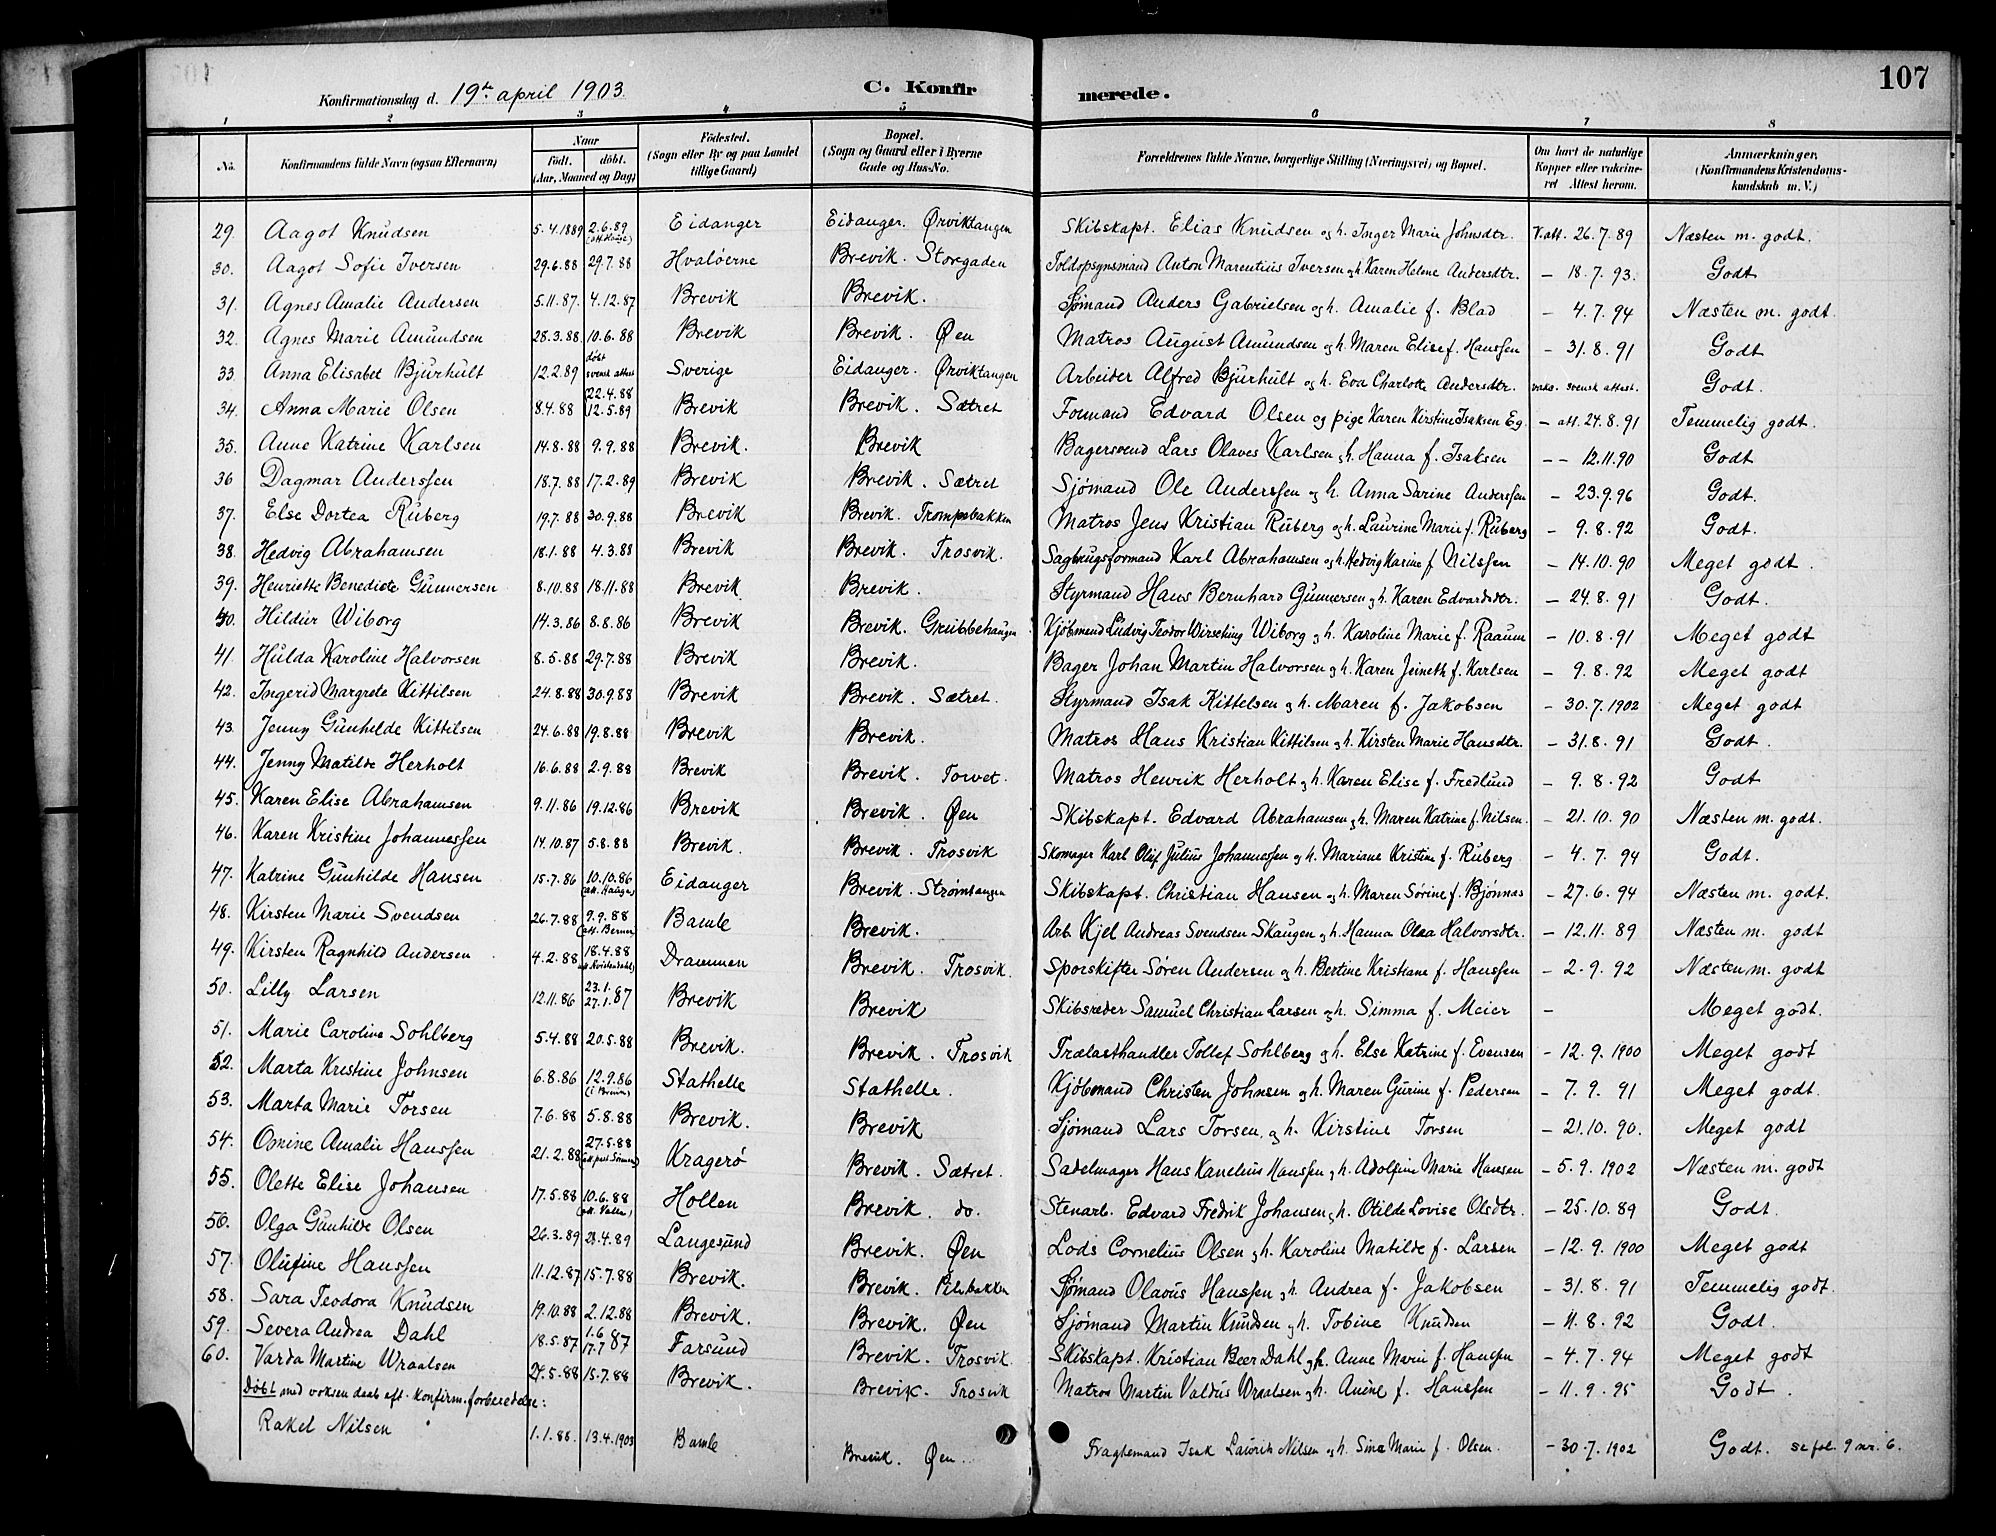 107
Konfirmationsdag d. 19de april 1903
C. Konfirmerede.
1 2 3 4 5 6 7 8
No. | Konfirmandens fulde Navn (ogsaa Efternavn) | Naar født. døbt. (Aar, Maaned og Dag) | Fødested. (Sogn eller By og paa Landet tillige Gaard) | Bopæl. (Sogn og Gaard eller i Byerne Gade og Hus-No. | Forældrenes fulde Navne, borgerlige Stilling (Næringsvei) og Bopæl. | Om havt de naturlige Kopper eller vakcineret Attest herom. | Anmærkninger. (Konfirmandens Kristendomskundskab m. V.)
29. Aagot Knudsen 5.4.1889 2.6.89 (att. Hauge) Eidanger Eidanger. Ørviktangen Skibskapt. Elias Knudsen og h. Inger Marie Johnsdtr. V. att. 26.7.89 Næsten m. godt.
30. Aagot Sofie Iversen 29.6.88 29.7.88 Hvaløerne Brevik. Storgaden Toldopsynsmand Anton Marentius Iversen og h. Karen Helene Andersdtr. – 18.7.93. Godt
31. Agnes Amalie Andersen 5.11.87. 4.12.87 Brevik Brevik. Sjømand Anders Gabrielsen og h. Amalie f. Blad – 4.7.94 Næsten m. godt.
32. Agnes Marie Amundsen 28.3.88 10.6.88 Brevik Brevik. Øen Matros August Amundsen og h. Maren Elise f. Hanssen – 31.8.91 Godt
33. Anna Elisabet Bjurhult 12.2.89 døbt svensk attest Sverige Eidanger. Ørviktangen Arbeider Alfred Bjurhult og h. Eva Charlotte Andersdtr. vakc. svensk attest. Godt.
34. Anna Marie Olsen 8.4.88 22.4.88 12.5.89 Brevik Brevik. Sætret Formand Edvard Olsen og pige Karen Kirstine Isaksen Eg. – att. 24.8.91 Temmelig godt.
35. Anne Katrine Karlsen 14.8.88 9.9.88 Brevik. Brevik Bagersvend Lars Olaves Karlsen og h. Hanna f. Isaksen – – 12.11.90 Godt
36 Dagmar Anderssen 18.7.88 17.2.89 Brevik Brevik. Sætret Sjømand Ole Anderssen og h. Anna Sarine Anderssen – 23.9.96 Godt.
37. Else Dortea Ruberg 19.7.88 30.9.88 Brevik Brevik. Trompebakken Matros Jens Kristian Ruberg og h. Laurine Marie f. Ruberg – 9.8.92 Godt.
38. Hedvig Abrahamsen 18.1.88 4.3.88 Brevik Brevik. Trosvik. Sagbrugsformand Karl Abrahamsen og h. Hedvig Karine f. Nilssen – 14.10.90 Meget godt.
39. Henriette Benedicte Gunnersen 8.10.88 18.11.88 Brevik Brevik. Styrmand Hans Bernhard Gunnersen og h. Karen Edvardsdtr. – 24.8.91 Godt.
40. Hildur Wiborg 14.3.86 8.8.86 Brevik Brevik. Grubbehaugen Kjøbmend Ludvig Teodor Wirsching Wiborg og h. Karoline Marie f. Raaum – 10.8.91 Meget godt
41. Hulda Karoline Halvorsen 8.5.88 29.7.88 Brevik Brevik. Bager Johan Martin Halvorsen og h. Karen Jeineth f. Karlsen – 9.8.92 Meget godt
42. Ingerid Margrete Kittilsen 24.8.88 30.9.88 Brevik Brevik. Sætret. Styrmand Isak Kittelsen og h. Maren f. Jakobsen – 30.7.1902 Meget godt
43. Jenny Gunhilde Kittilsen 24.6.88 19.8.88 Brevik Brevik. Matros Hans Kristian Kittilsen og h. Kirsten Marie Hansdtr. – 31.8.91 Godt.
44. Jenny Matilde Herholt 16.6.88 2.9.88 Brevik Brevik. Torvet. Matros Henrik Herholt og h. Karen Elise f. Fredlund – 9.8.92 Godt
45. Karen Elise Abrahamsen 9.11.86 19.12.86 Brevik Brevik. Øen Skibskapt. Edvard Abrahamsen og h. Maren Katrine f. Nilsen. – 21.10.90 Næsten m. godt.
46. Karen Kristine Johannessen 14.10.87 5.8.88 Brevik. Brevik. Trosvik Skomager Karl Oluf Julius Johannessen og h. Mariane Kristine f. Ruberg – 4.7.94 Godt.
47. Katrine Gunhilde Hansen 15.7.86 10.10.86 (att. Haugen) Eidanger Brevik. Strømtangen Skibskapt. Christian Hansen og h. Maren Sørine f. Bjønnæs – 27.6.94 Næsten m. godt.
48. Kirsten Marie Svendsen 26.7.88 9.9.88 Bamle Brevik. Arb. Kjel Andreas Svendsen Skaugen og h. Hanna Olea Halvorsdtr. – 12.11.89 Næsten m. godt
49. Kirsten Ragnhild Andersen 4.2.88 18.4.88 Drammen Brevik. Trosvik. Sporskifter Søren Andersen og h. Bertine Kristiane f. Hanssen – 2.9.92 Næsten m. godt
50. Lilly Larsen 12.11.86 23.1. 27.1.87 Brevik Brevik Skibsreder Samuel Christian Larsen og h. Simma f. Meier – Meget godt.
51. Marie Caroline Sohlberg 5.4.88 20.5.88 Brevik. Brevik. Trosvik Trælasthandler Tollef Sohlberg og h. Else Katrine f. Evensen – 12.9.1900 Meget godt
52. Marta Kristine Johnsen 6.8.86 12.9.86 (i Brevik) Stathelle Stathelle. Kjøbmand Christen Johnsen og h. Maren Gurine f. Pedersen – 7.9.91 Meget godt
53. Marta Marie Torsen 7.6.88 5.8.88 Brevik. Brevik Sjømand Lars Torsen, og h. Kirstine Torsen – 21.10.90. Meget godt
54. Omine Amalie Hanssen 21.2.88 27.5.88 Kragerø Brevik. Sætret. Sadelmager Hans Kanelius Hanssen og h. Adolfine Marie Hansen – 5.9.1902 Næsten m. godt
55. Olette Elise Johansen 17.5.88 10.6.88 Hollen Brevik. do. Stenarb. Edvard Fredrik Johansen og h. Otilde Lovise Olsdtr. – 25.10.89 Godt.
56. Olga Gunhilde Olsen 26.3.89 28.4.89 Langesund Brevik. Øen Lods Cornelius Olsen og h. Karoline Matilde f. Larsen – 12.9.1900 Meget godt
57. Olufine Hanssen 11.12.87 15.7.88 Brevik. Brevik. Pilebakken Sjømand Olavus Hanssen og h. Andrea f. Jakobsen – 31.8.91 Temmelig godt.
58. Sara Teodora Knudsen 19.10.88 2.12.88 Brevik. Brevik. Øen Sjømand Martin Knudsen og h. Tobine Knudsen – 11.8.92 Godt.
59. Severa Andrea Dahl 18.5.87 1.6 17.7 87 Farsund Brevik. Trosvik. Skibskapt. Kristian Beer Dahl og h. Anne Marie f. Hanssen – 4.7.94 Meget godt
60. Varda Martine Wraalsen 24.5.88 15.7.88 Brevik. Brevik. Trosvik Matros Martin Valdus Wraalsen og h. Anine f. Hanssen – 11.9.95 Godt.
Døbt med voksen daab eft. konfirm.forberedelse:
Rakel Nilsen 1.1.88. 13.4.1903 Bamle Brevik. Øen. Fragtemand Isak Laurits Nilsen og h. Sina Marie f. Olsen. – 30.7.1902 Godt. se fol. 9 nr. 6.